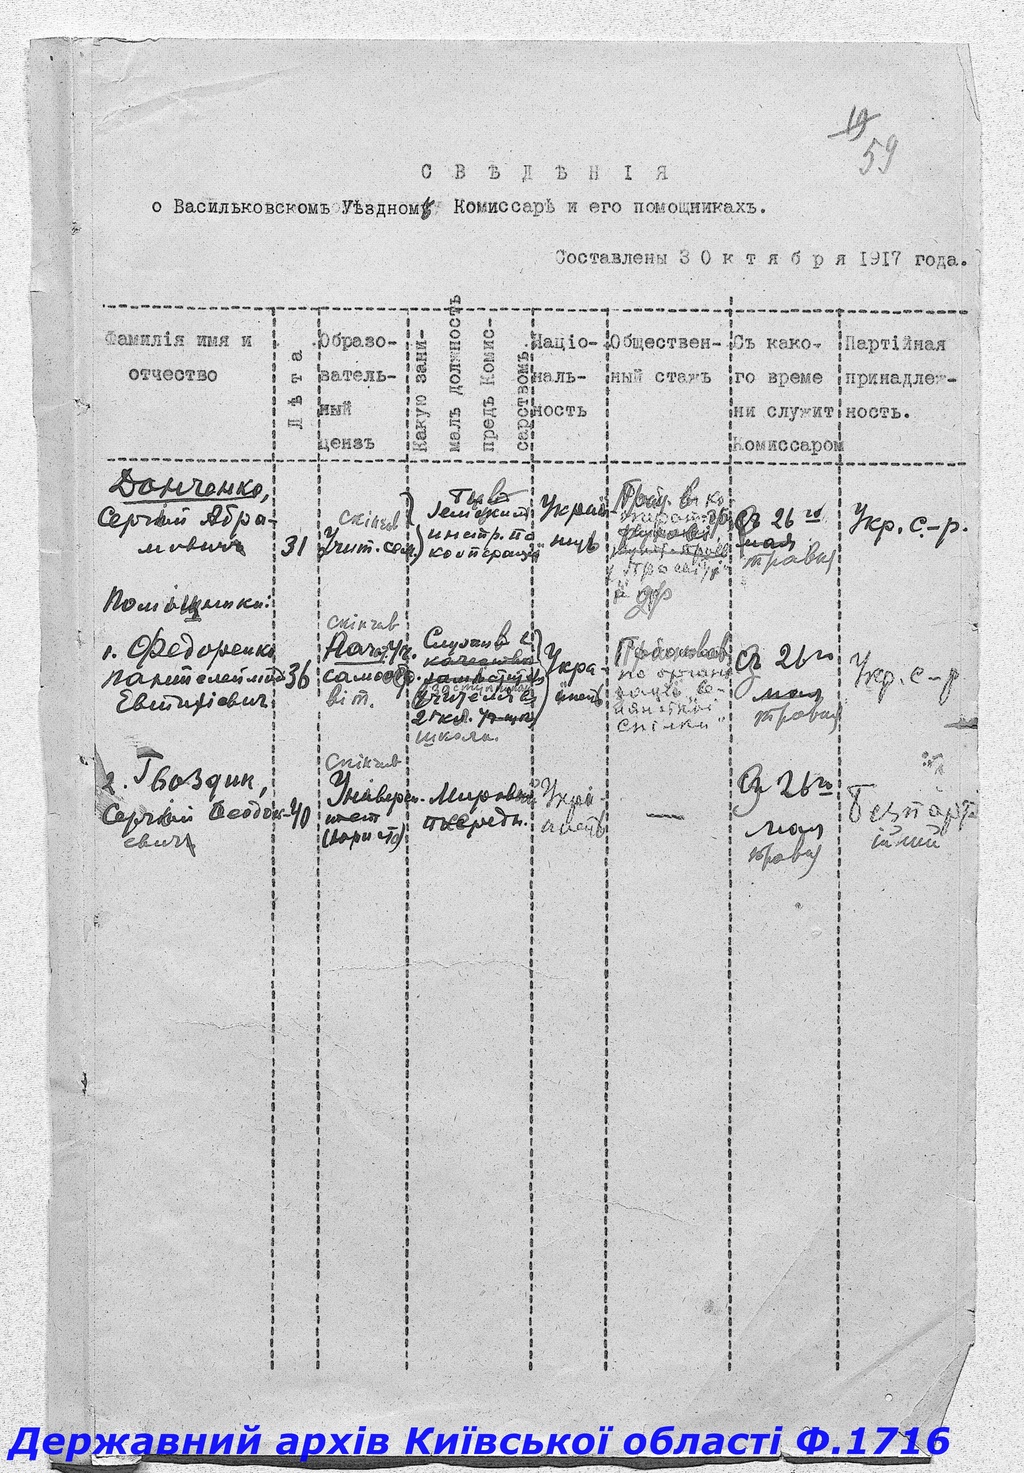 19
59
СВѢДѢНІЯ
о Васильковскомъ Уѣздномъ Комиссарѣ и его помощникахъ.
Составлены 30 октября 1917 года.
Фамилія имя и
отчество
Лѣта
Образо-
ватель-
ный
цензъ
Какую зани-
малъ должность
предъ Комис-
сарствомъ
Націо-
наль-
ность
Обществен-
ный стажъ
Съ како-
го време
ни служит
Комиссаром
Партійная
принадлеж-
ность.
Донченко,
Сергій Абра-
мович
31
скінчив
Учит. сем.
був
інстр. по
кооперації
Украї-
нець
Прац. в ко-
"Просвіті"
й др
Съ 26 го
мая
травня
Укр. с.-р.
Помішники:
1. Федоренко
Пантелеймон
Евтихіевич
36
скінчив
Нач. уч.
самоосв
віт.
Служив
учителя
2 кл.
школи.
Укра-
їнець
Працював
по органі-
зації се-
спілки"
Съ 26 го
мая
травня
Укр. с.-р
2. Гвоздик,
Сергій Феодос-
евич
40
скінчив
Універси-
тет
(юрист)
Мировий
посередн.
Укра-
їнець
—
Съ 26 го
мая
травня
Безпарт
ійний
Державний архів Київської області Ф.1716